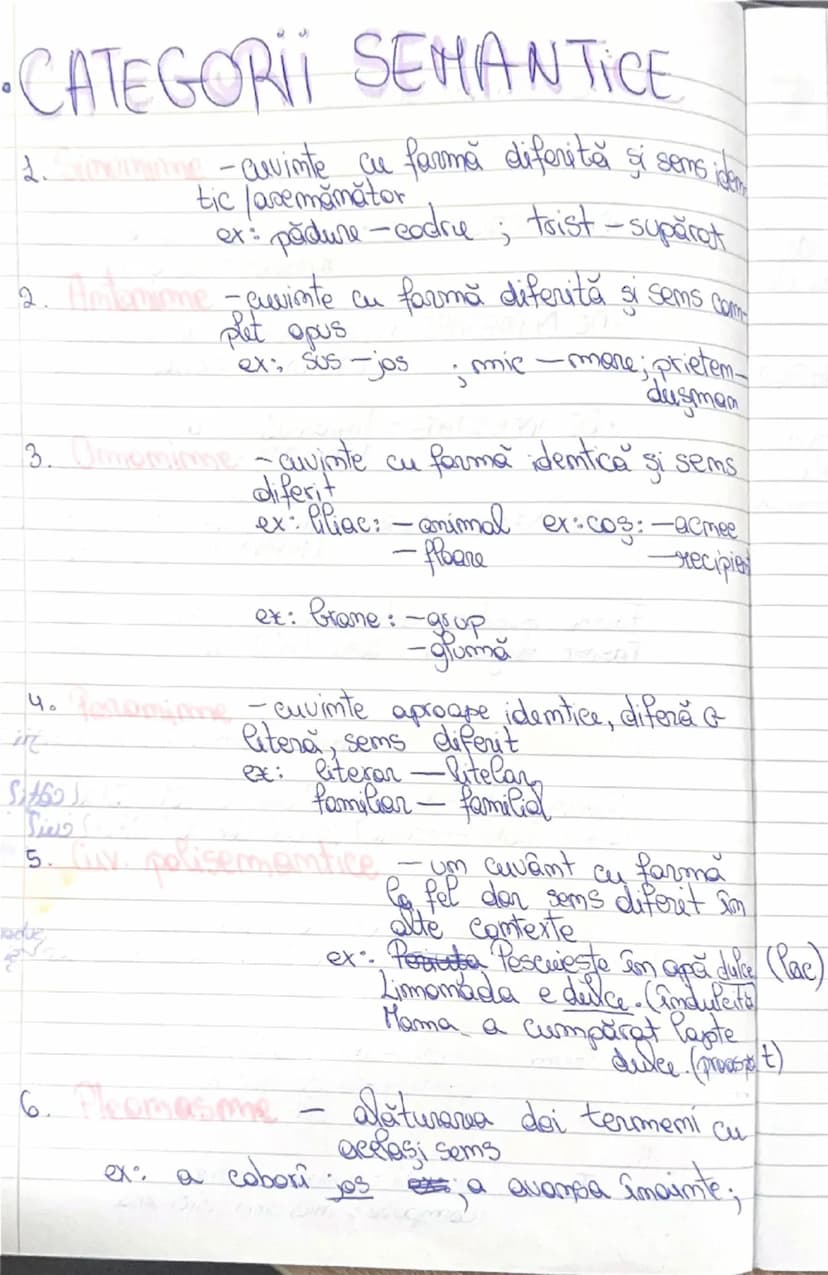 • CATEGORII SEMANTICE
1. Sinonime - cuvinte cu formă diferită și sens iden
tic / asemănător
ex: pădure - codru ; trist - supărat
2. Antonime - cuvinte cu formă diferită și sens com-
plet opus
ex: sus - jos ; mic - mare; prieten-
dușman
3. Omonime - cuvinte cu formă identică și sens
diferit
ex: liliac: - animal ex: coș: - acnee
- floare - recipient
ex: brane: - grup
- glumă
4. Paronime - cuvinte aproape identice, diferă o
literă, sens diferit
ex: literar - litelar
familiar - familial
5. Cuv. polisemantice - un cuvânt cu formă
la fel dar sens diferit în
alte contexte
ex: Pescuiește în apă dulce (lac)
Limonada e dulce. (îndulcită
Mama a cumpărat lapte
dulce. (proaspăt)
6. Pleonasme - alăturarea doi termeni cu
același sens
ex: a coborî jos ; a avansa înainte;